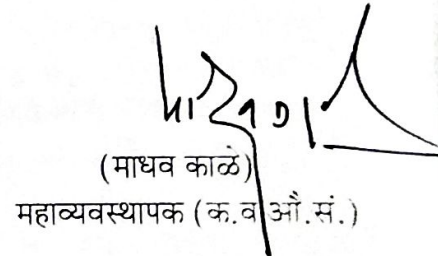 (माधव काळे)
महाव्यवस्थापक (क.व औ.सं.)